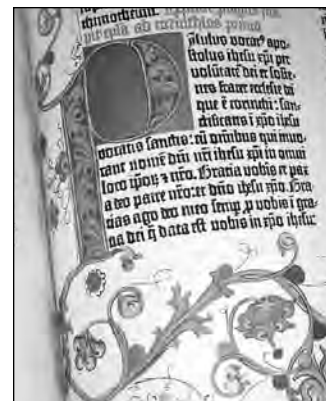 thimotheum.
epła ad corinthios prima
P aulus vocatꝰ apo⸗
stolus ihesu xp̄i per
volūtatē dei et soste⸗
nes frater ecclesie dei
que ē corinthi: san⸗
ctificatis ī xp̄o ihesu
vocatis sanctis: cū omnibus qui invo⸗
cant nomē dn̄i nr̄i ihesu xp̄i in omni
loco ipoꝝ ⁊ nr̄o. Gracia vobis et pax
a deo patre nr̄o: et dn̄o ihesu xp̄o. Gra⸗
cias ago deo meo semꝑ ꝓ vobis ī gra⸗
dei q̄ data est vobis in xp̄o ihesu: